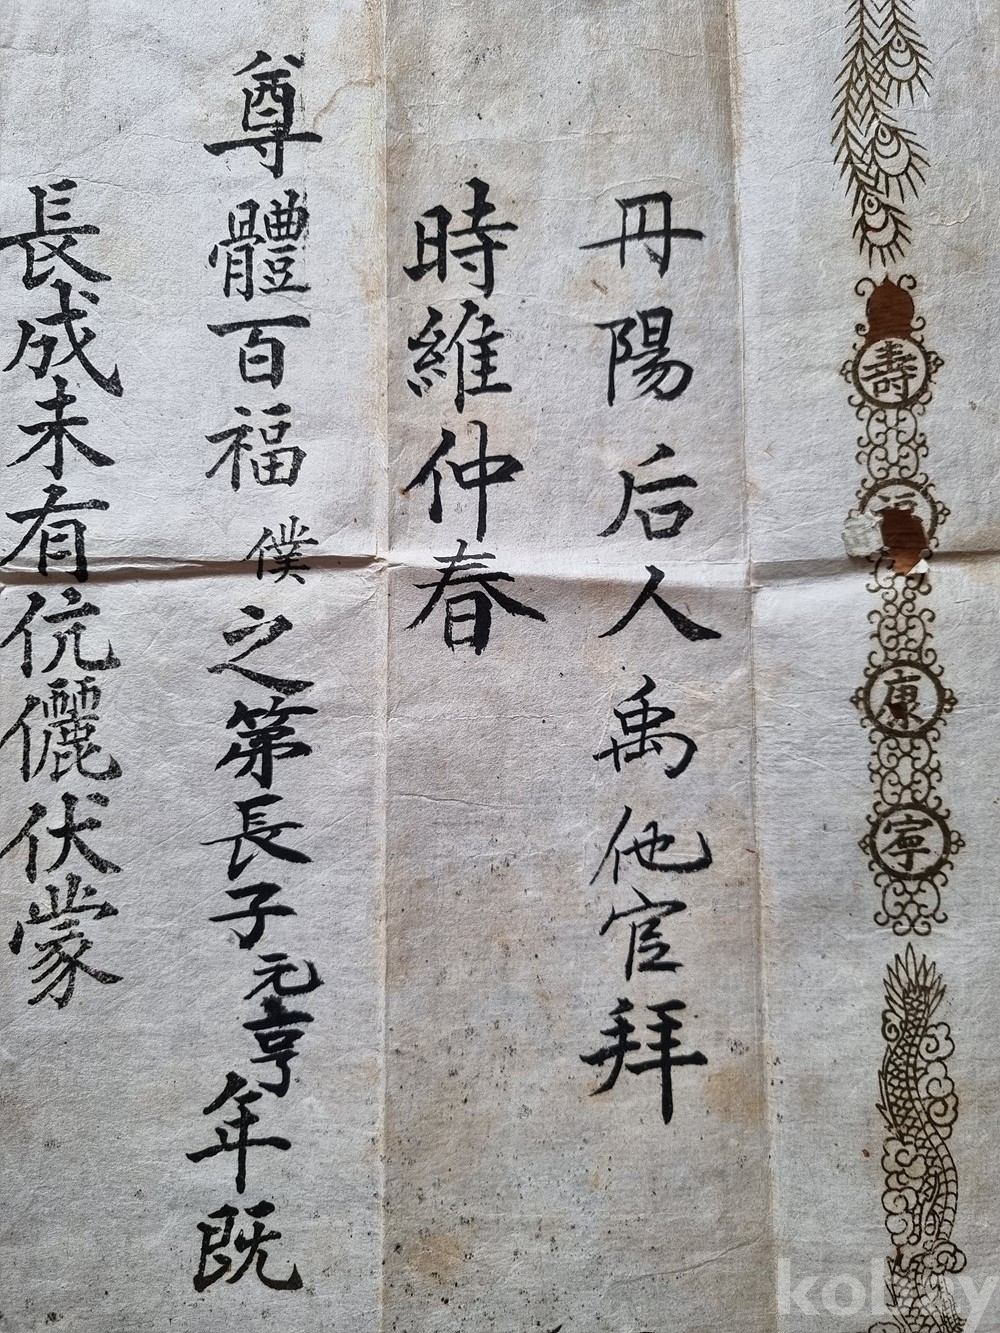 壽
福
康
寧
丹陽后人禹他官拜
時維仲春
尊體百福僕之第長子元亨年旣
長成未有伉儷伏蒙